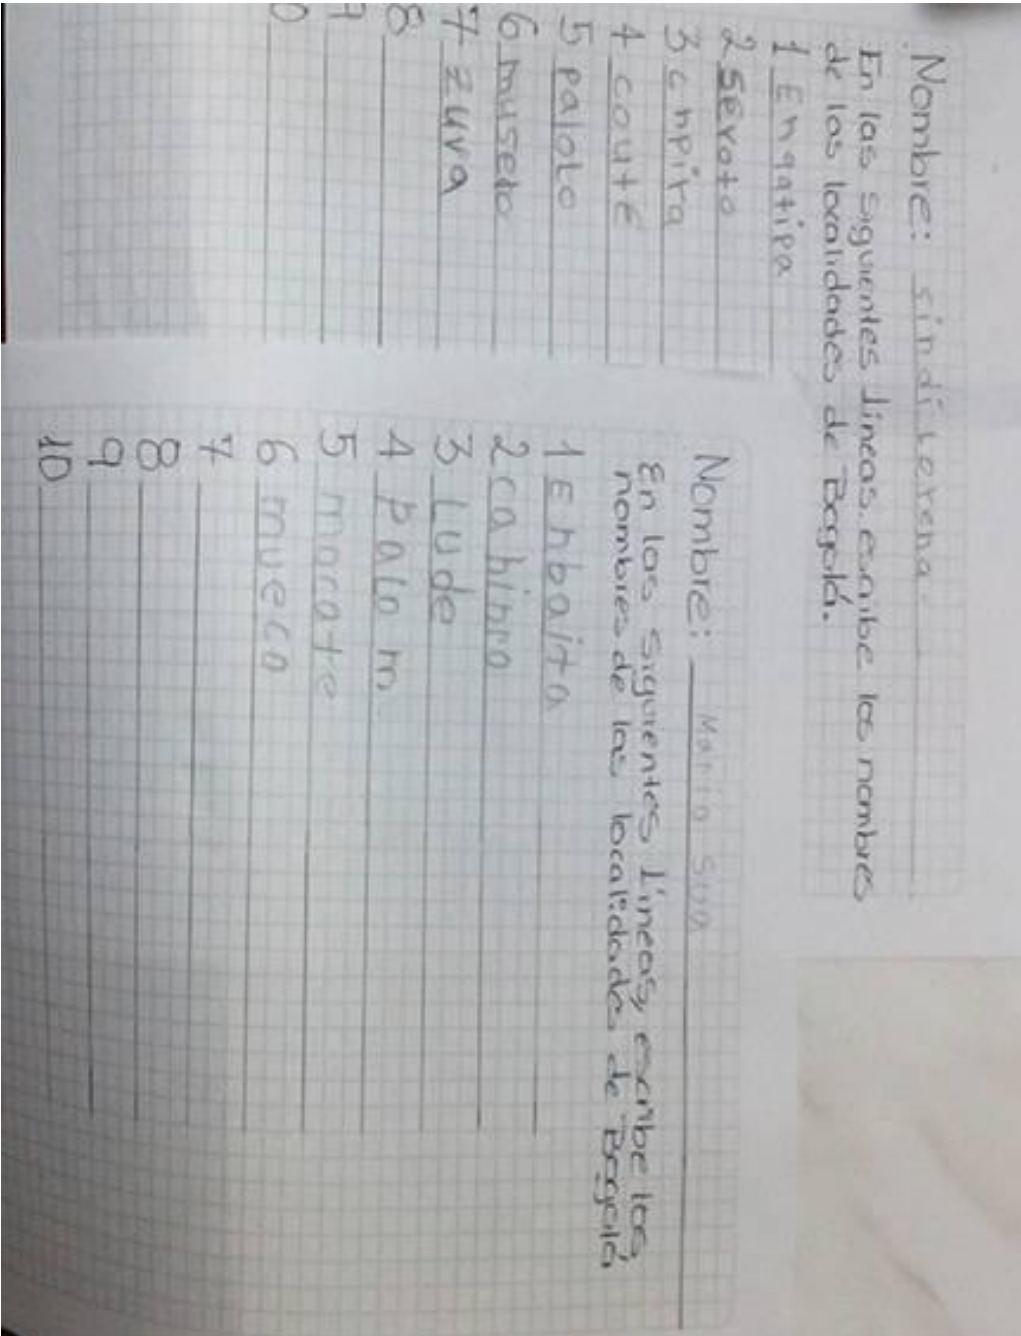 Nombre: sindi Lorena
En las siguientes líneas, escribe los nombres
de las localidades de Bogotá.
1 Engatipa
2 seroto
3 cnpira
4 coute
5 palolo
6 museto
7 zuva
8
9
0
Nombre: Maria
En las siguientes líneas, escribe los
nombres de las localidades de Bogotá
1 Enbaita
2 cahinro
3 Lude
4 Palo m
5 mocate
6 mueco
7
8
9
10